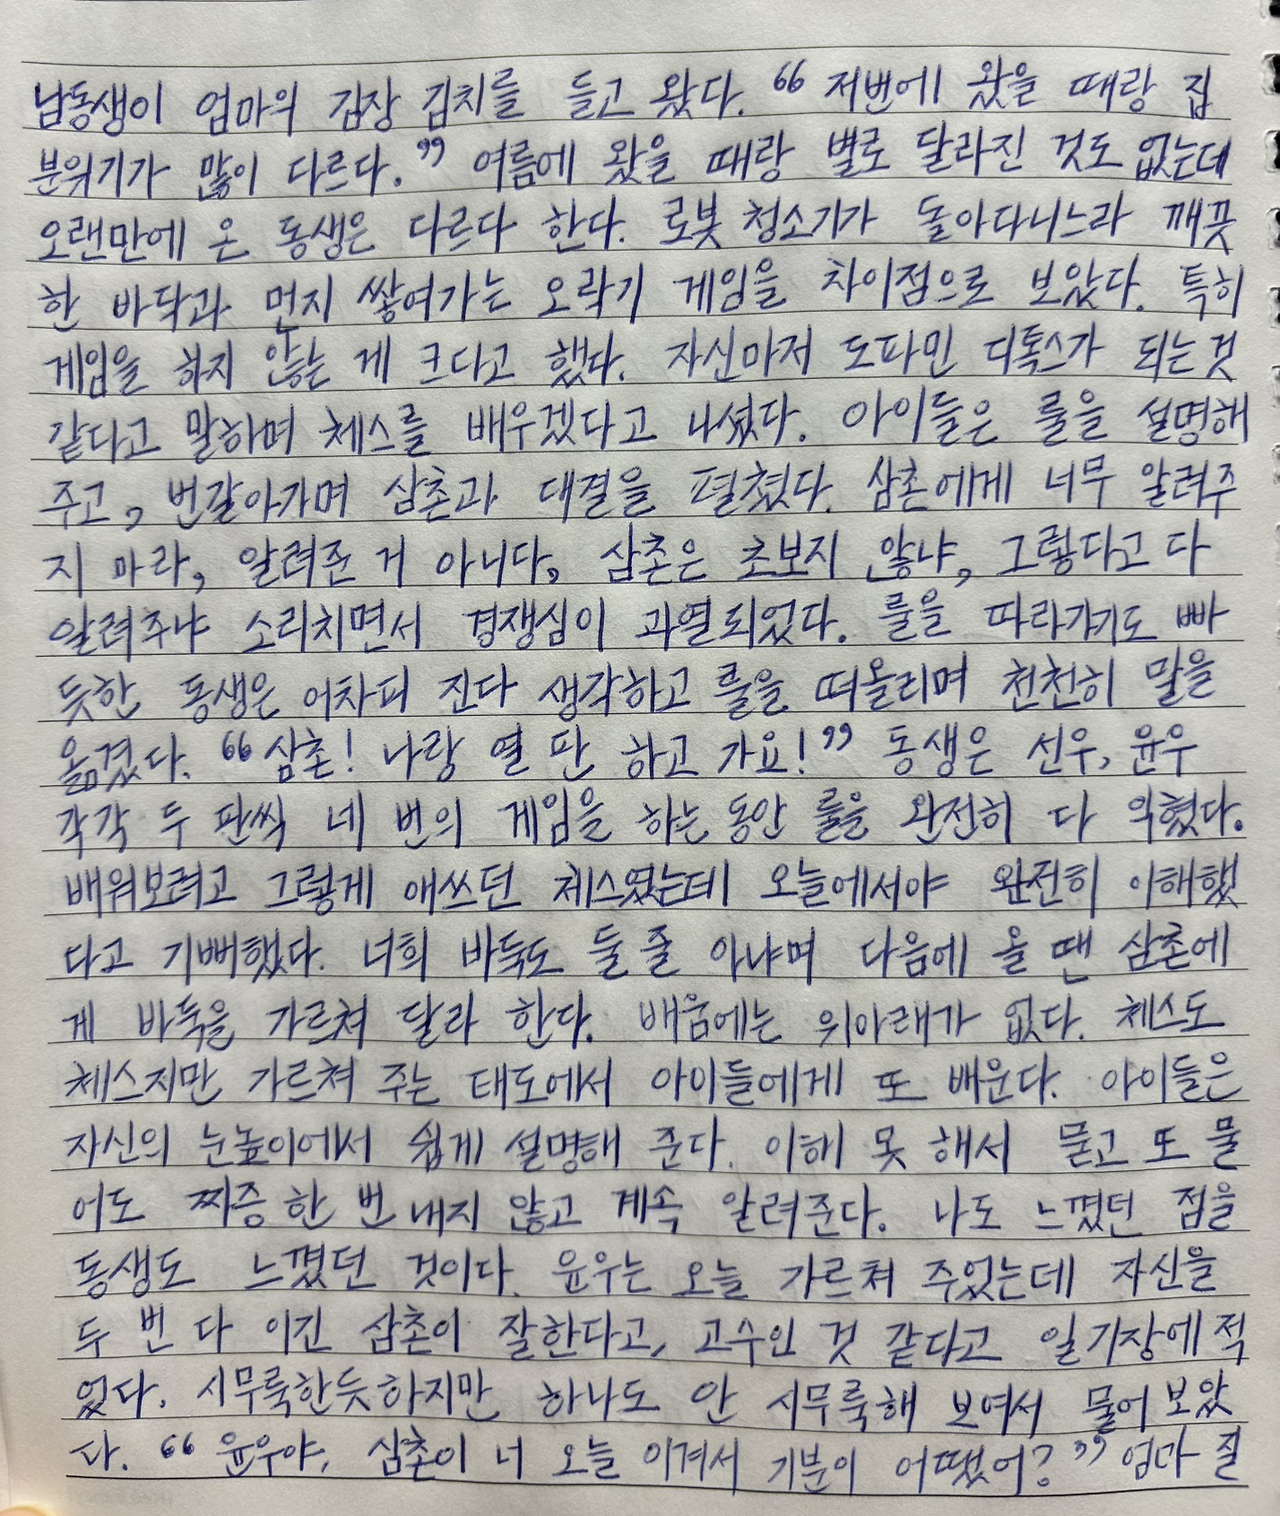 남동생이 엄마의 김장 김치를 들고 왔다. “저번에 왔을 때랑 집
분위기가 많이 다르다.” 여름에 왔을 때랑 별로 달라진 것도 없는데
오랜만에 온 동생은 다르다 한다. 로봇 청소기가 돌아다니느라 깨끗
한 바닥과 먼지 쌓여가는 오락기 게임을 차이점으로 보았다. 특히
게임을 하지 않는 게 크다고 했다. 자신마저 도파민 디톡스가 되는 것
같다고 말하며 체스를 배우겠다고 나섰다. 아이들은 룰을 설명해
주고, 번갈아가며 삼촌과 대결을 펼쳤다. 삼촌에게 너무 알려주
지 마라, 알려준 거 아니다, 삼촌은 초보지 않냐, 그렇다고 다
알려주냐 소리치면서 경쟁심이 과열되었다. 룰을 따라가기도 빠
듯한 동생은 어차피 진다 생각하고 룰을 떠올리며 천천히 말을
옮겼다. “삼촌! 나랑 열 판 하고 가요!” 동생은 선우, 윤우
각각 두 판씩 네 번의 게임을 하는 동안 룰을 완전히 다 익혔다.
배워보려고 그렇게 애쓰던 체스였는데 오늘에서야 완전히 이해했
다고 기뻐했다. 너희 바둑도 둘 줄 아냐며 다음에 올 땐 삼촌에
게 바둑을 가르쳐 달라 한다. 배움에는 위아래가 없다. 체스도
체스지만 가르쳐 주는 태도에서 아이들에게 또 배운다. 아이들은
자신의 눈높이에서 쉽게 설명해 준다. 이해 못 해서 묻고 또 물
어도 짜증 한 번 내지 않고 계속 알려준다. 나도 느꼈던 점을
동생도 느꼈던 것이다. 윤우는 오늘 가르쳐 주었는데 자신을
두 번 다 이긴 삼촌이 잘한다고, 고수인 것 같다고 일기장에 적
었다. 시무룩한듯하지만 하나도 안 시무룩해 보여서 물어 보았
다. “윤우야, 삼촌이 너 오늘 이겨서 기분이 어땠어?” 엄마 질